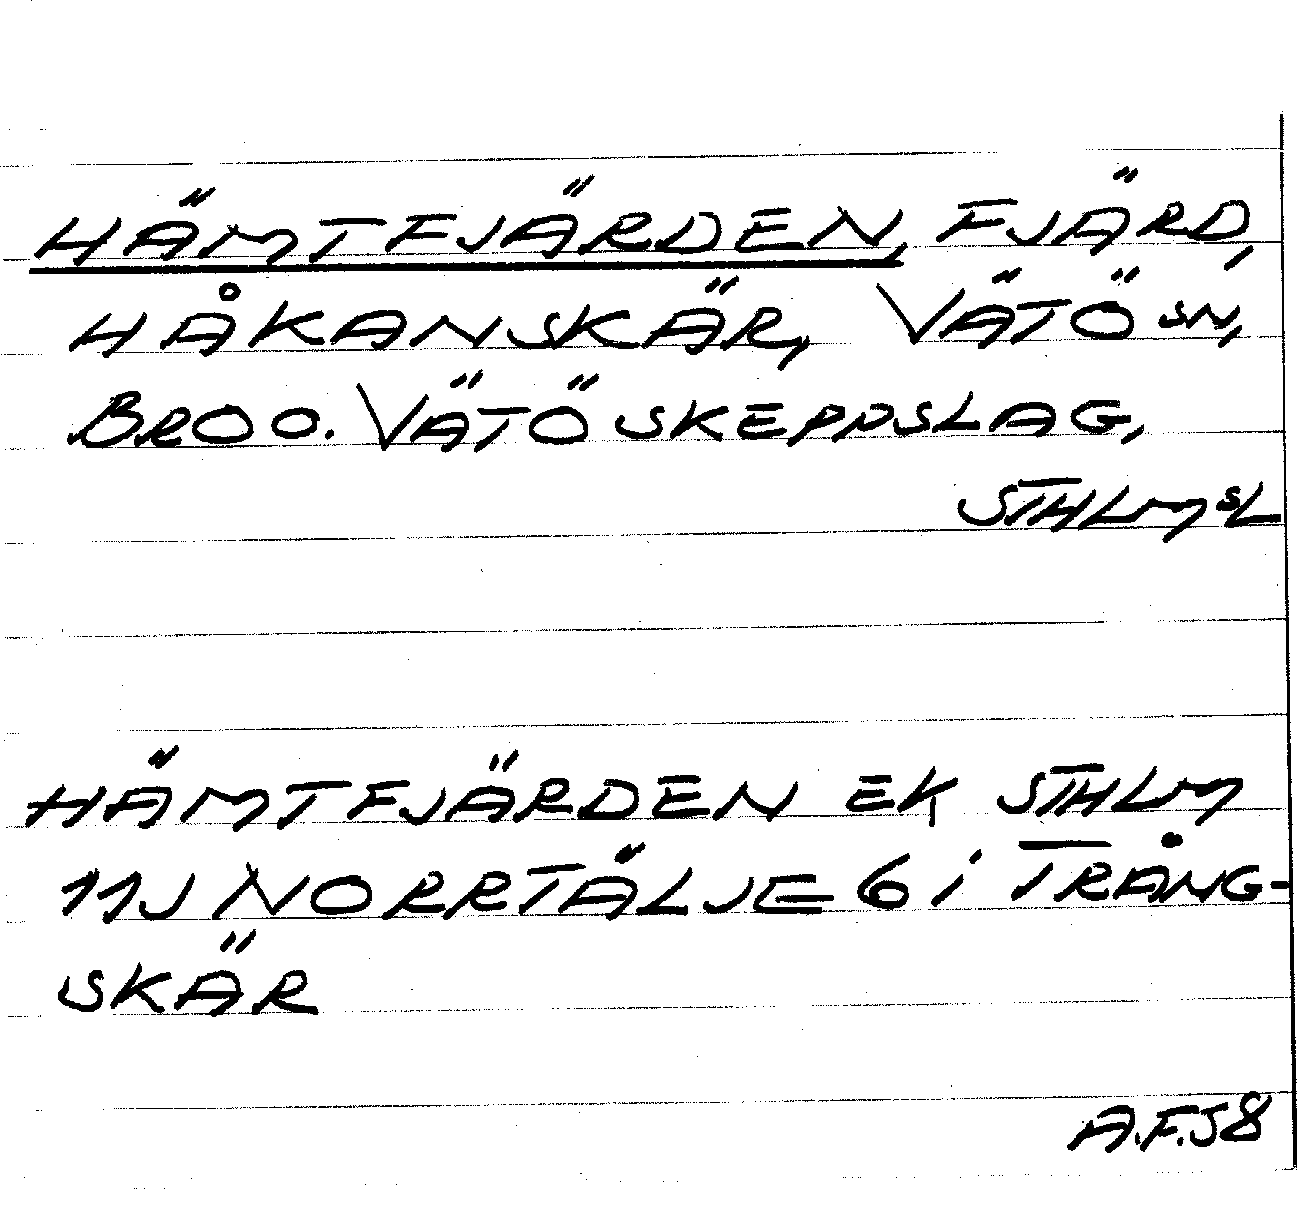 HÄMTFJÄRDEN, FJÄRD,
HÅKANSKÄR, VÄTÖ SN,
BRO O. VÄTÖ SKEPPSLAG,
STHLMSL
HÄMTFJÄRDEN EK STHLM
11J NORRTÄLJE 6 i TRÅNG-
SKÄR
A.F.58